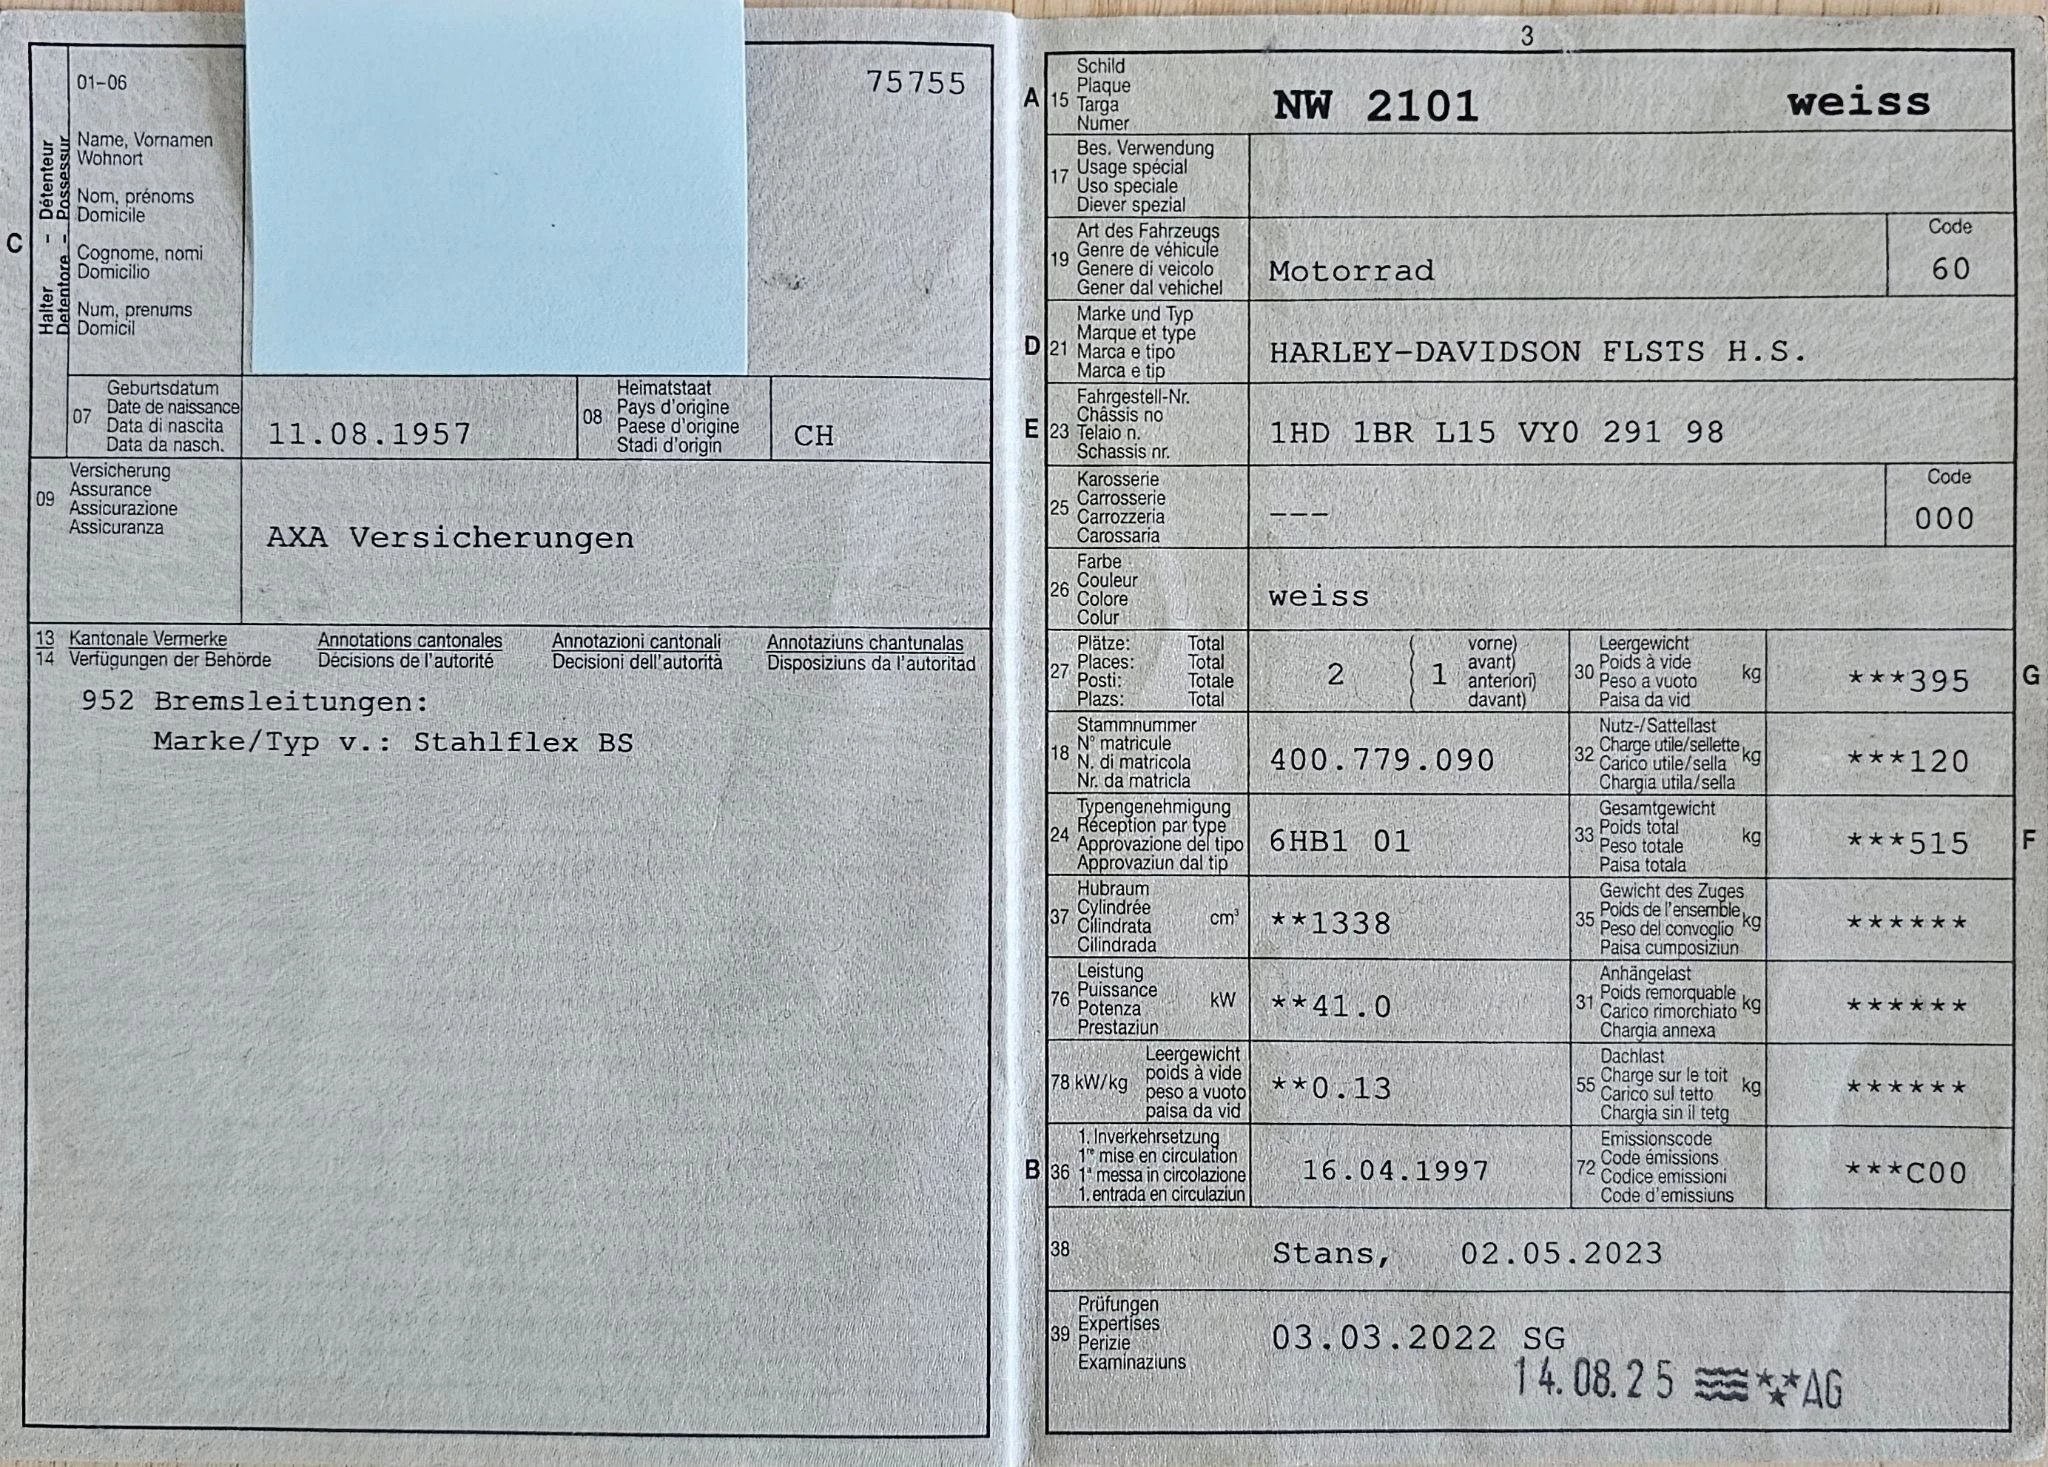 01–06
75755
Name, Vornamen
Wohnort
Nom, prénoms
Domicile
Cognome, nomi
Domicilio
Num, prenums
Domicil
C
Halter – Détenteur
Detentore – Possessur
07
Geburtsdatum
Date de naissance
Data di nascita
Data da nasch.
11.08.1957
08
Heimatstaat
Pays d'origine
Paese d'origine
Stadi d'origin
CH
09
Versicherung
Assurance
Assicurazione
Assicuranza
AXA Versicherungen
13 Kantonale Vermerke Annotations cantonales Annotazioni cantonali Annotaziuns chantunalas
14 Verfügungen der Behörde Décisions de l'autorité Decisioni dell'autorità Disposiziuns da l'autoritad
952 Bremsleitungen:
Marke/Typ v.: Stahlflex BS
3
A
15
Schild
Plaque
Targa
Numer
NW 2101 weiss
17
Bes. Verwendung
Usage spécial
Uso speciale
Diever spezial
19
Art des Fahrzeugs
Genre de véhicule
Genere di veicolo
Gener dal vehichel
Motorrad
Code
60
D
21
Marke und Typ
Marque et type
Marca e tipo
Marca e tip
HARLEY-DAVIDSON FLSTS H.S.
E
23
Fahrgestell-Nr.
Châssis no
Telaio n.
Schassis nr.
1HD 1BR L15 VY0 291 98
25
Karosserie
Carrosserie
Carrozzeria
Carossaria
---
Code
000
26
Farbe
Couleur
Colore
Colur
weiss
27
Plätze: Total
Places: Total
Posti: Totale
Plazs: Total
2
1
vorne)
avant)
anteriori)
davant)
30
Leergewicht
Poids à vide
Peso a vuoto
Paisa da vid
kg
***395
G
18
Stammnummer
N° matricule
N. di matricola
Nr. da matricla
400.779.090
32
Nutz-/Sattellast
Charge utile/sellette
Carico utile/sella
Chargia utila/sella
kg
***120
24
Typengenehmigung
Réception par type
Approvazione del tipo
Approvaziun dal tip
6HB1 01
33
Gesamtgewicht
Poids total
Peso totale
Paisa totala
kg
***515
F
37
Hubraum
Cylindrée
Cilindrata
Cilindrada
cm³
**1338
35
Gewicht des Zuges
Poids de l'ensemble
Peso del convoglio
Paisa cumposiziun
kg
******
76
Leistung
Puissance
Potenza
Prestaziun
kW
**41.0
31
Anhängelast
Poids remorquable
Carico rimorchiato
Chargia annexa
kg
******
78 kW/kg
Leergewicht
poids à vide
peso a vuoto
paisa da vid
**0.13
55
Dachlast
Charge sur le toit
Carico sul tetto
Chargia sin il tetg
kg
******
B
36
1. Inverkehrsetzung
1re mise en circulation
1a messa in circolazione
1. entrada en circulaziun
16.04.1997
72
Emissionscode
Code émissions
Codice emissioni
Code d'emissiuns
***C00
38
Stans, 02.05.2023
39
Prüfungen
Expertises
Perizie
Examinaziuns
03.03.2022 SG
14.08.25 AG